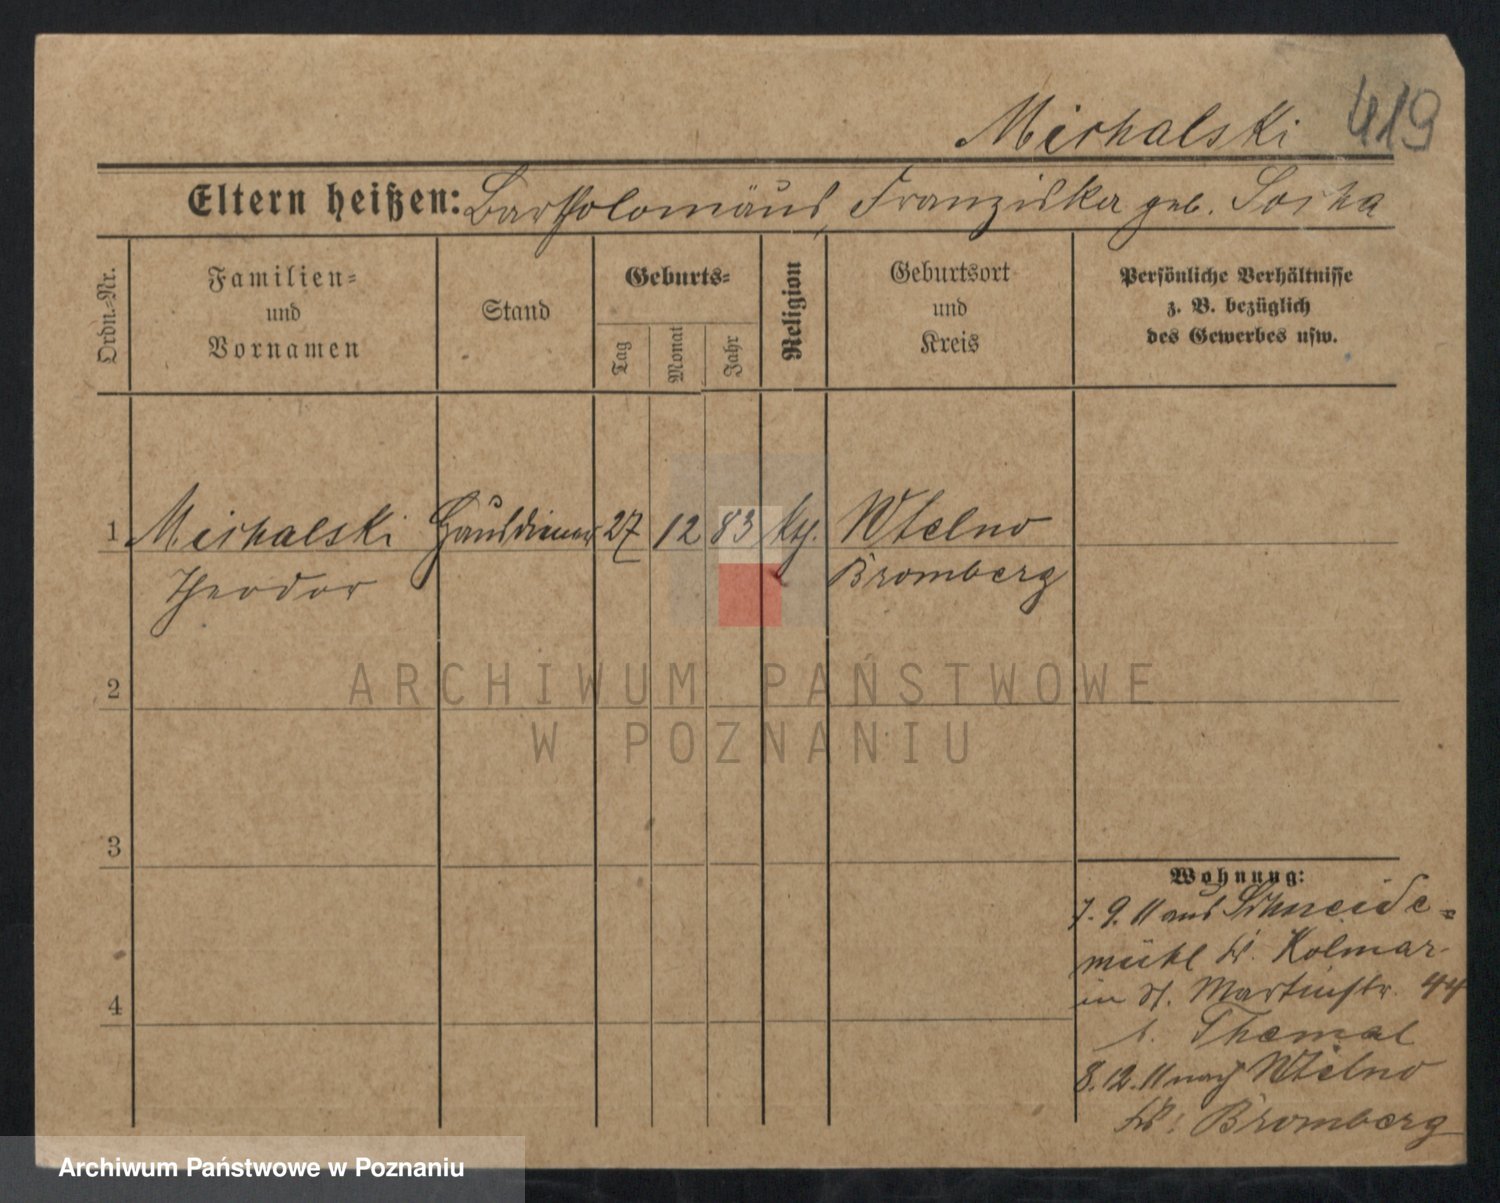 419
Michalski
Eltern heißen: Bartholomäus, Franziska geb. Socha
Ordn.-Nr.
Familien-
und
Vornamen
Stand
Geburts-
Tag
Monat
Jahr
Religion
Geburtsort
und
Kreis
Persönliche Verhältnisse
z. B. bezüglich
des Gewerbes usw.
1 Michalski Hausdiener 27 12 83 kth. Wtelno
Theodor Bromberg
ARCHIWUM PAŃSTWOWE
W POZNANIU
2
3
4
Wohnung:
7. 9. 11 aus Schneide-
mühl Kr. Kolmar
in St. Martinstr. 44
b. Thomas
8. 12. 11 nach Wtelno
Kr. Bromberg
Archiwum Państwowe w Poznaniu